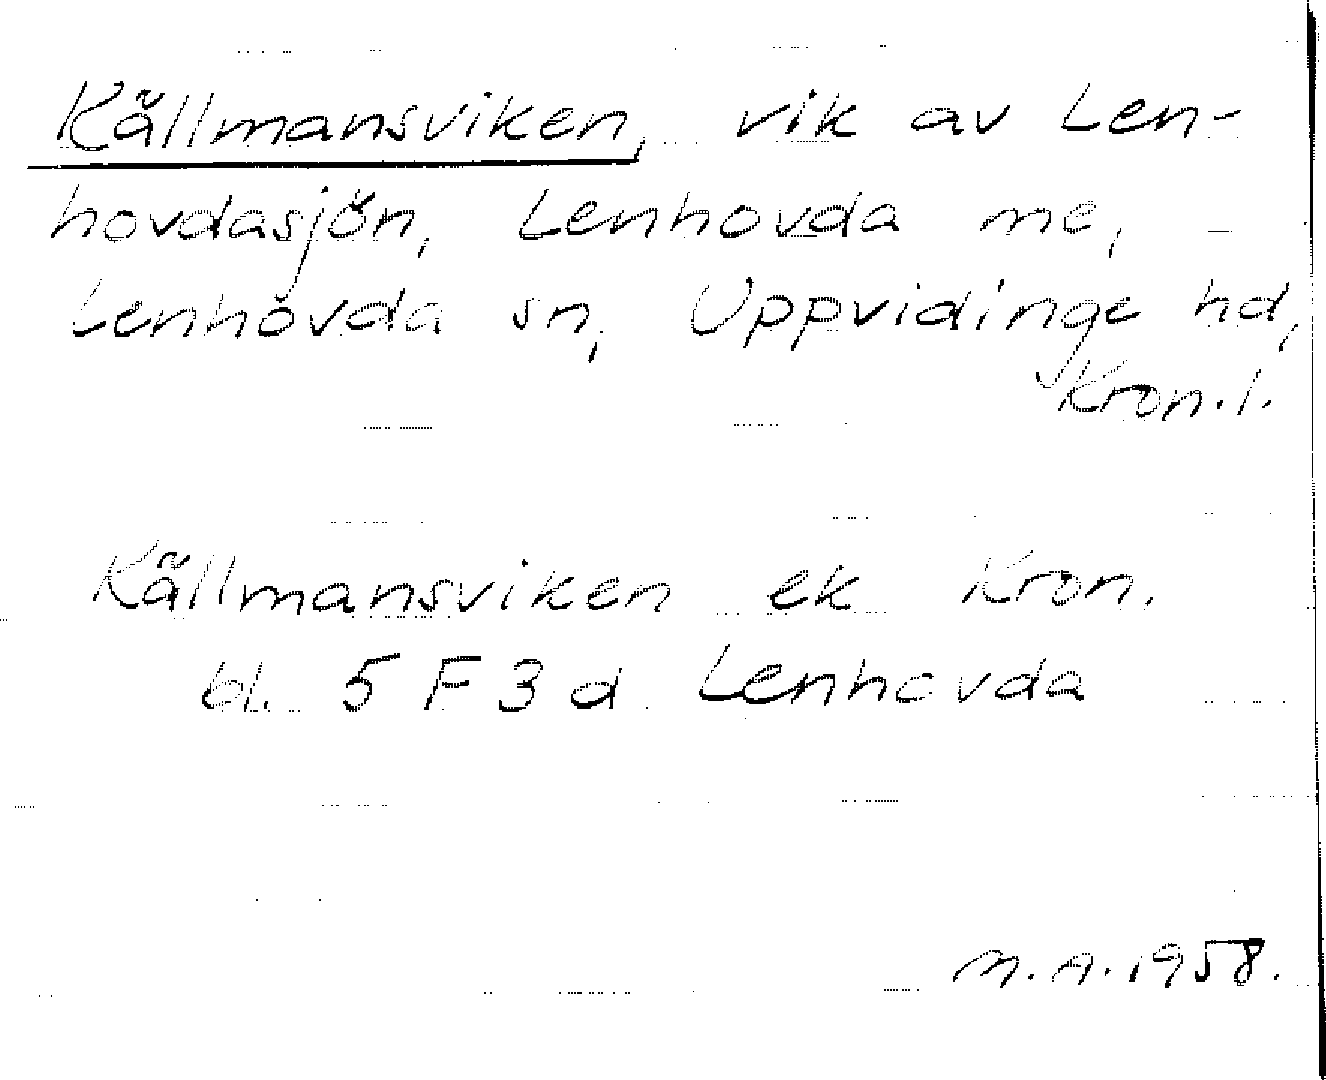 Källmansviken, vik av Len-
hovdasjön, Lenhovda me,
Lenhovda sn, Uppvidinge hd,
Kron.l.
Källmansviken ek Kron.
bl. 5 F 3 d Lenhovda
M.A. 1958.